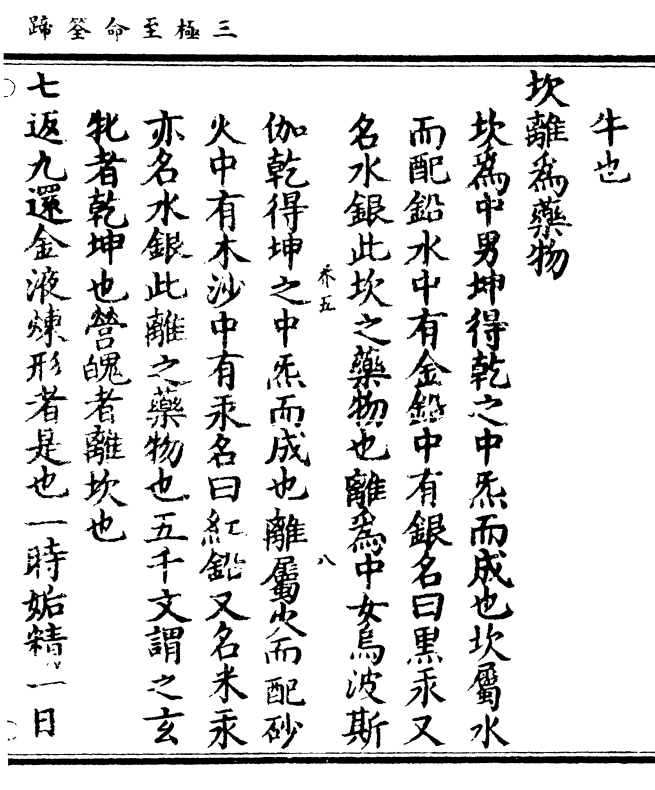 三極至命筌蹄
牛也
坎離爲藥物
坎爲中男坤得乾之中炁而成也坎屬水
而配鉛水中有金鉛中有銀名曰黑汞又
名水銀此坎之藥物也離爲中女烏波斯
叅五
八
伽乾得坤之中炁而成也離屬火而配砂
火中有木沙中有汞名曰紅鉛又名米汞
亦名水銀此離之藥物也五千文謂之玄
牝者乾坤也營魄者離坎也
七返九還金液煉形者是也一時姤精一日